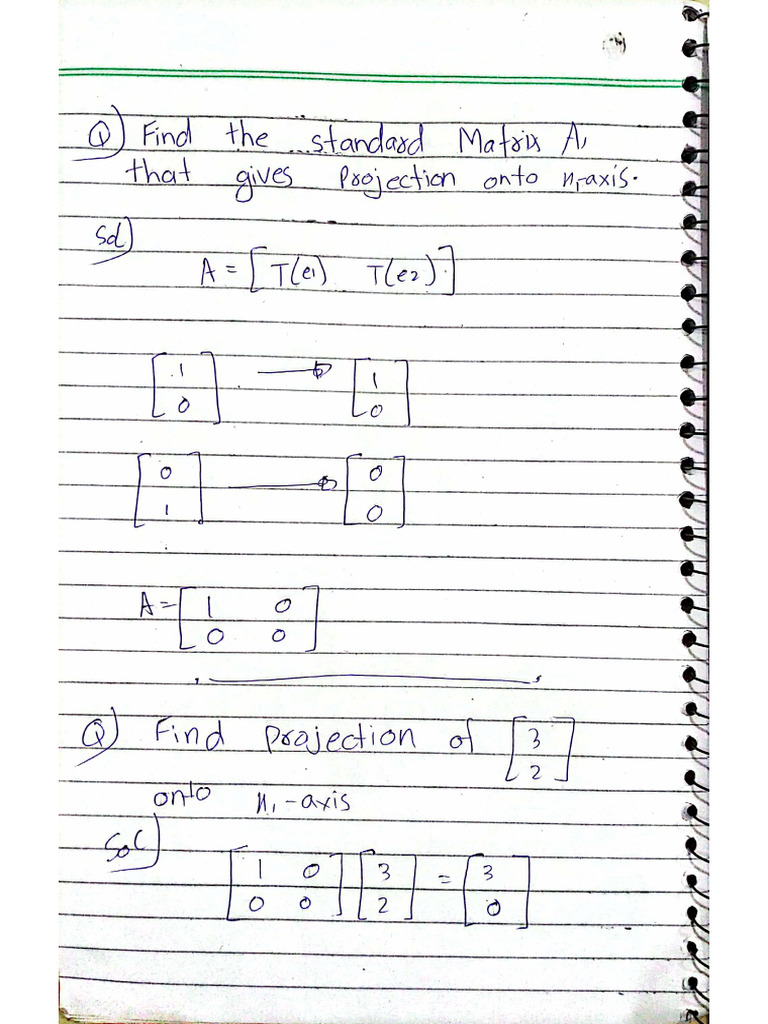 Q) Find the standard Matrix A,
that gives Projection onto x₁-axis.
Sol)
A = [ T(e1) T(e2) ]
[ 1 ] → [ 1 ]
[ 0 ] [ 0 ]
[ 0 ] → [ 0 ]
[ 1 ] [ 0 ]
A = [ 1 0 ]
[ 0 0 ]
Q) Find projection of [ 3 ]
[ 2 ]
onto x₁-axis
Sol)
[ 1 0 ] [ 3 ] = [ 3 ]
[ 0 0 ] [ 2 ] [ 0 ]